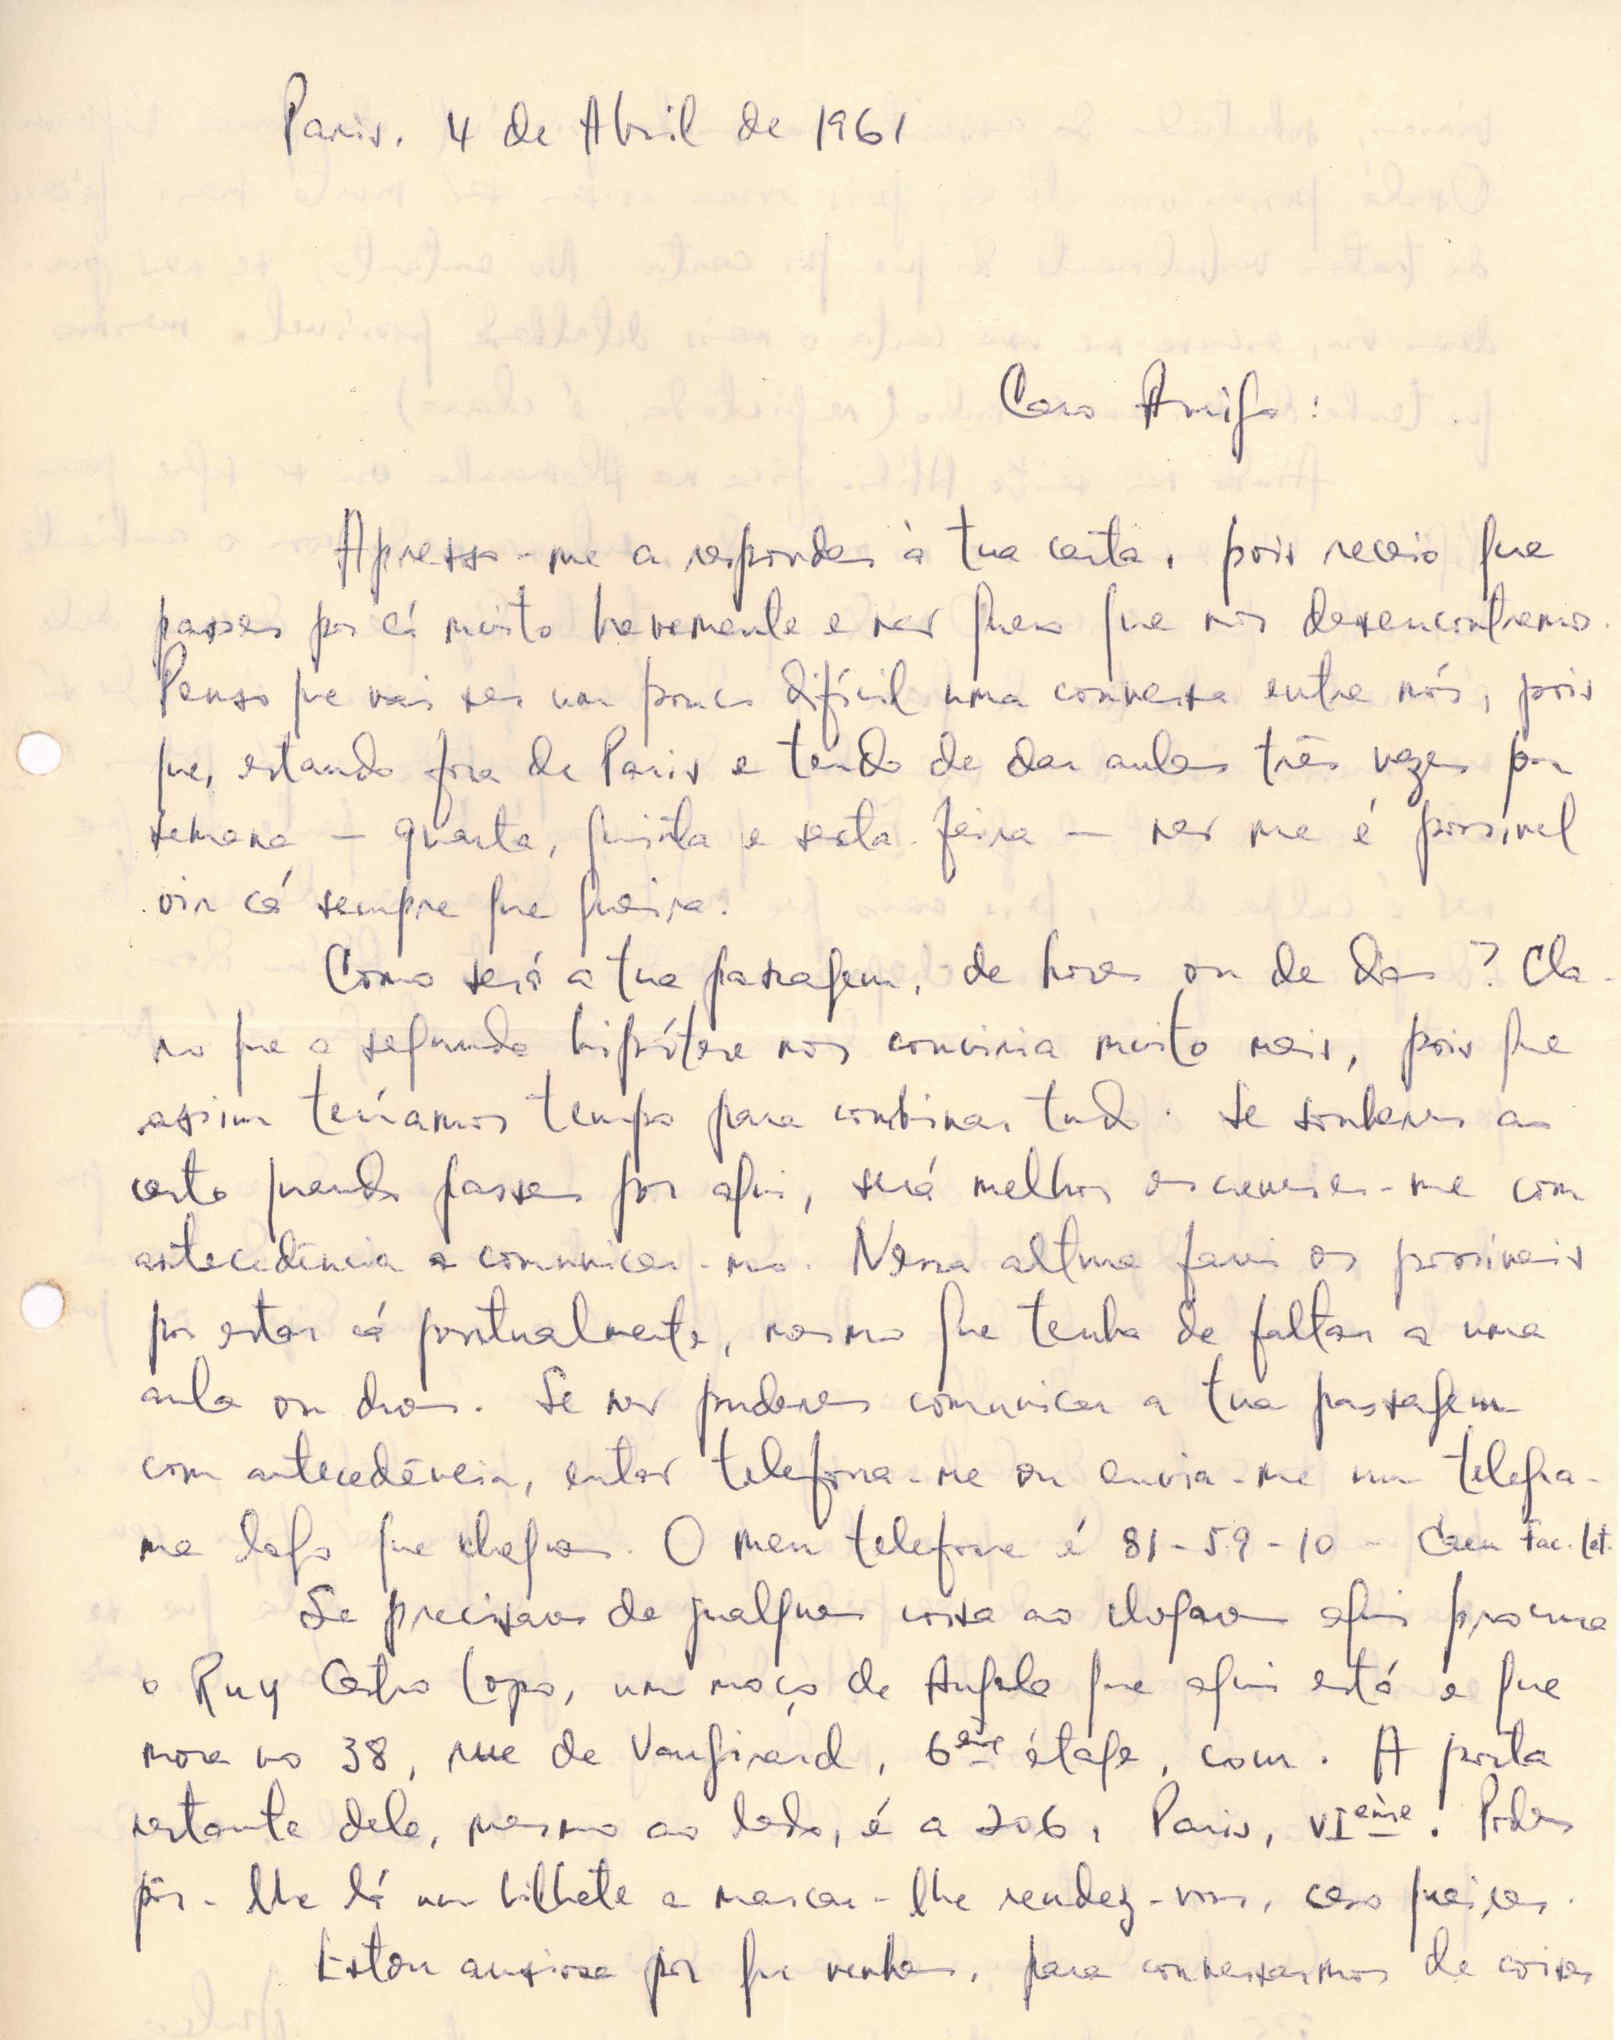 Paris, 4 de Abril de 1961
Caro Amigo:
Apresso-me a responder à tua carta, pois receio que
passes por cá muito brevemente e não quero que nos desencontremos.
Penso que vai ser um pouco difícil uma conversa entre nós, pois
que, estando fora de Paris e tendo de dar aulas três vezes por
semana — quarta, quinta e sexta-feira — não me é possível
vir cá sempre que queira.
Como será a tua passagem, de horas ou de dias? Cla-
ro que a segunda hipótese nos conviria muito mais, pois que
assim teríamos tempo para combinar tudo. Se souberes ao
certo quando passas por aqui, será melhor escreveres-me com
antecedência a comunicar-mo. Nessa altura farei os possíveis
por estar cá pontualmente, mesmo que tenha de faltar a uma
aula ou duas. Se não puderes comunicar a tua passagem
com antecedência, então telefona-me ou envia-me um telegra-
ma logo que chegues. O meu telefone é 81-59-10 - Caen Fac. Let.
Se precisares de qualquer coisa ao chegares aqui procura
o Ruy Castro Lopo, um moço de Angola que aqui está e que
mora no 38, rue de Vaugirard, 6ème étage, com. A porta
restante dele, mesmo ao lado, é a 206, Paris, VIème. Podes
pôr-lhe lá um bilhete a marcar-lhe rendez-vous, caso queiras.
Estou ansiosa por que venhas, para conversarmos de coisas